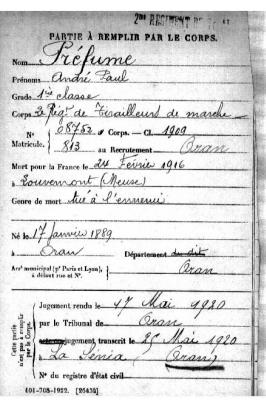 2me RÉGIMENT DE
PARTIE À REMPLIR PAR LE CORPS.
Nom Préfume
Prénoms André Paul
Grade 1ère classe
Corps 2e Régt de Tirailleurs de marche
N° 08752 au Corps. — Cl. 1909
Matricule. 813 au Recrutement Oran
Mort pour la France le 24 Février 1916
à Louvemont (Meuse)
Genre de mort tué à l'ennemi
Né le 17 Janvier 1889
à Oran Département du dit
Arrt municipal (pr Paris et Lyon), à défaut rue et N°. Oran
Cette partie n'est pas à remplir par le Corps.
Jugement rendu le 17 Mai 1920
par le Tribunal de Oran
jugement transcrit le 25 Mai 1920
à La Sénia, (Oran)
N° du registre d'état civil
101-708-1922. [26434]